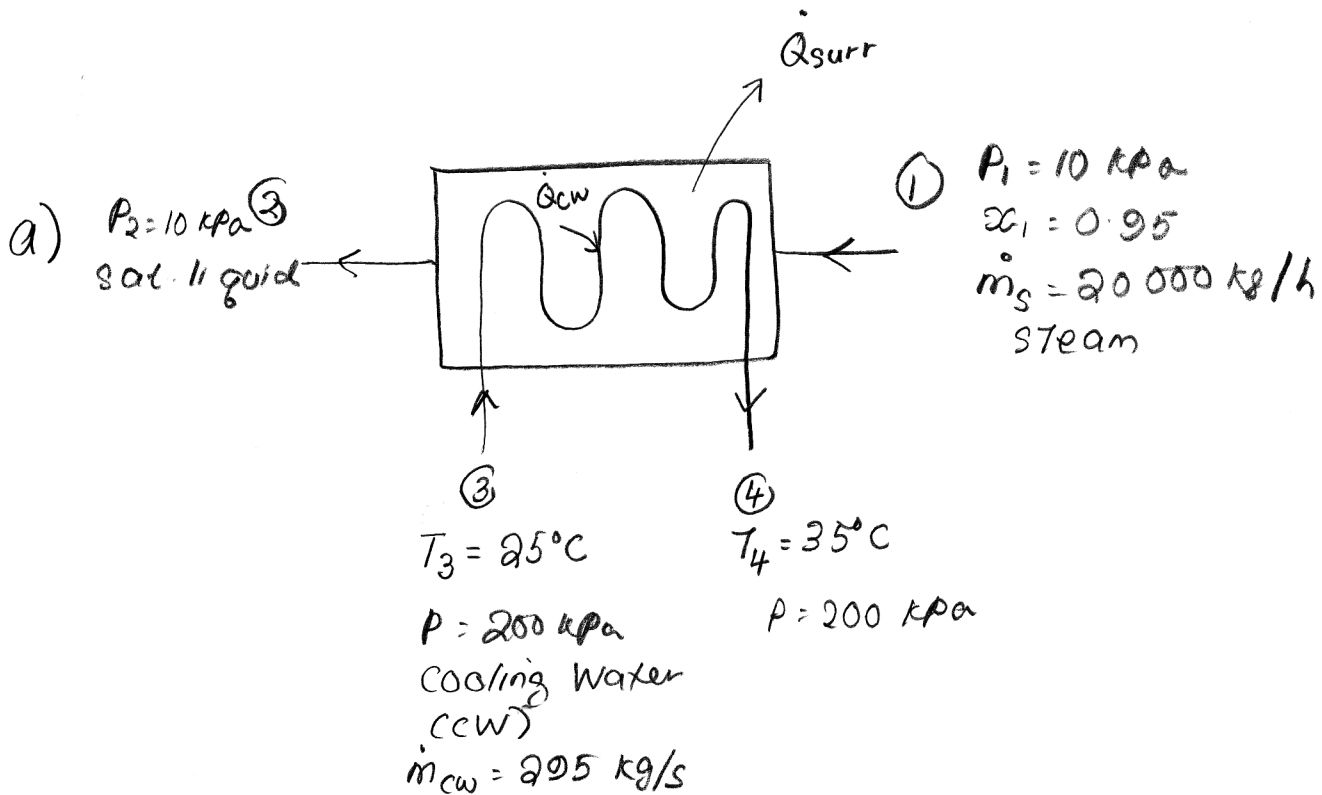 Q̇surr
a) P₂=10 kPa ②
sat. liquid
Q̇cw
① P₁ = 10 kPa
x₁ = 0.95
ṁₛ = 20 000 kg/h
steam
③
T₃ = 25°C
P = 200 kPa
cooling water
(CW)
ṁcw = 295 kg/s
④
T₄ = 35°C
P = 200 kPa